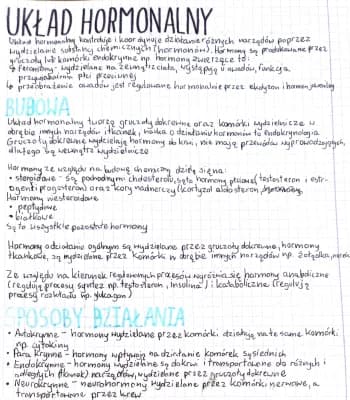 UKŁAD HORMONALNY
Układ hormonalny kontroluje i koordynuje działanie różnych narządów poprzez
wydzielanie substancji chemicznych (hormonów). Hormony są produkowane przez
gruczoły lub komórki endokrynne np hormony zwierzęce to:
↳ feromony - wydzielane na zewnątrz ciała, występują u owadów, funkcja
przywabianie płci przeciwnej
↳ przeobrażenie owadów jest regulowane hormonalnie przez ekdyzon i hormon juwenilny
BUDOWA
Układ hormonalny tworzą gruczoły dokrewne oraz komórki wydzielnicze w
obrębie innych narządów i tkanek, nauka o działaniu hormonów to endokrynologia
Gruczoły dokrewne wydzielają hormony do krwi, nie mają przewodów wyprowadzających,
dlatego są wewnątrz wydzielnicze
Hormony ze względu na budowę chemiczną dzielą się na:
• steroidowe - są pochodnymi cholesterolu, są to hormony płciowe (testosteron i estr-
ogeny i progesteron) oraz kory nadnerczy (kortyzol aldosteron
Hormony niesteroidowe
• peptydowe
• białkowe
Są to wszystkie pozostałe hormony
Hormony o działaniu ogólnym są wydzielane przez gruczoły dokrewne, hormony
tkankowe, są wydzielane przez komórki w obrębie innych narządów np. żołądka, nerek
Ze względu na kierunek regulowanych procesów wyróżnia się hormony anaboliczne
(regulują procesy syntez np. testosteron, insulina) i kataboliczne (regulują
procesy rozkładu np. glukagon)
SPOSOBY DZIAŁANIA
• Autokrynne - hormony wydzielane przez komórki działają na te same komórki
np. cytokiny
• Parakrynne - hormony wpływają na działanie komórek sąsiednich
• Endokrynne - hormony wydzielane są do krwi i transportowane do różnych i
odległych (tkanek) narządów, wydzielane przez gruczoły dokrewne
• Neurokrynne - neurohormony wydzielane przez komórki nerwowe, a
transportowane przez krew